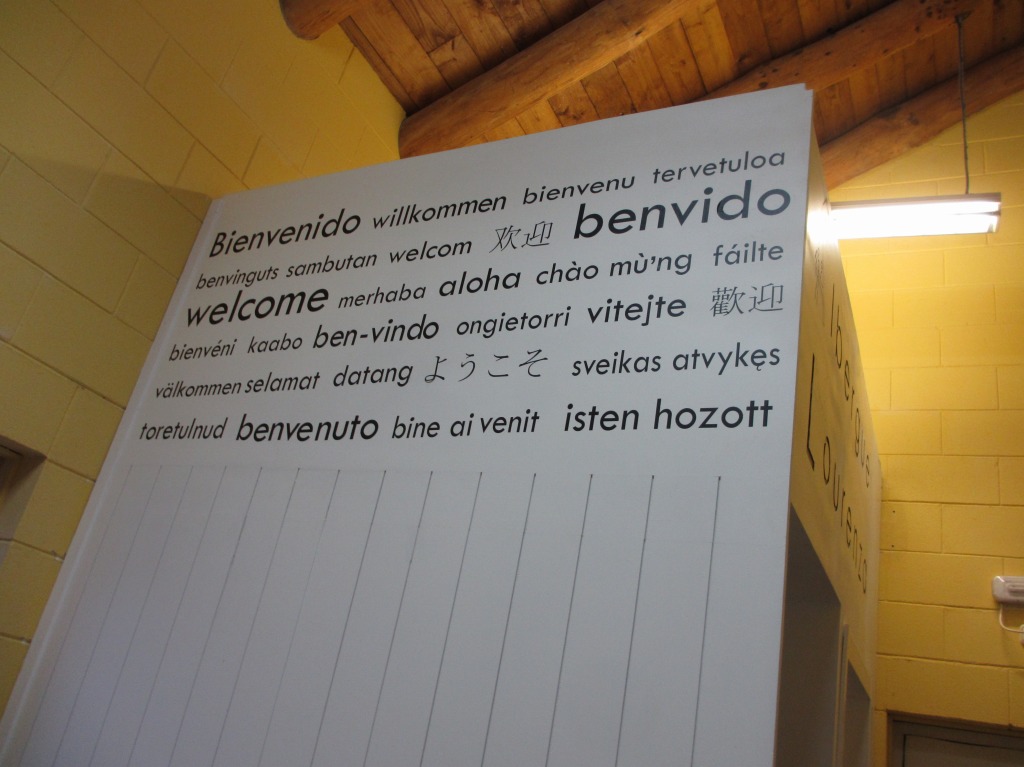 Bienvenido willkommen bienvenu tervetuloa
benvinguts sambutan welcom 欢迎 benvido
welcome merhaba aloha chào mù'ng fáilte
bienvéni kaabo ben-vindo ongietorri vitejte 歡迎
välkommen selamat datang ようこそ sveikas atvykęs
toretulnud benvenuto bine ai venit isten hozott
lbergue
Lourenzo